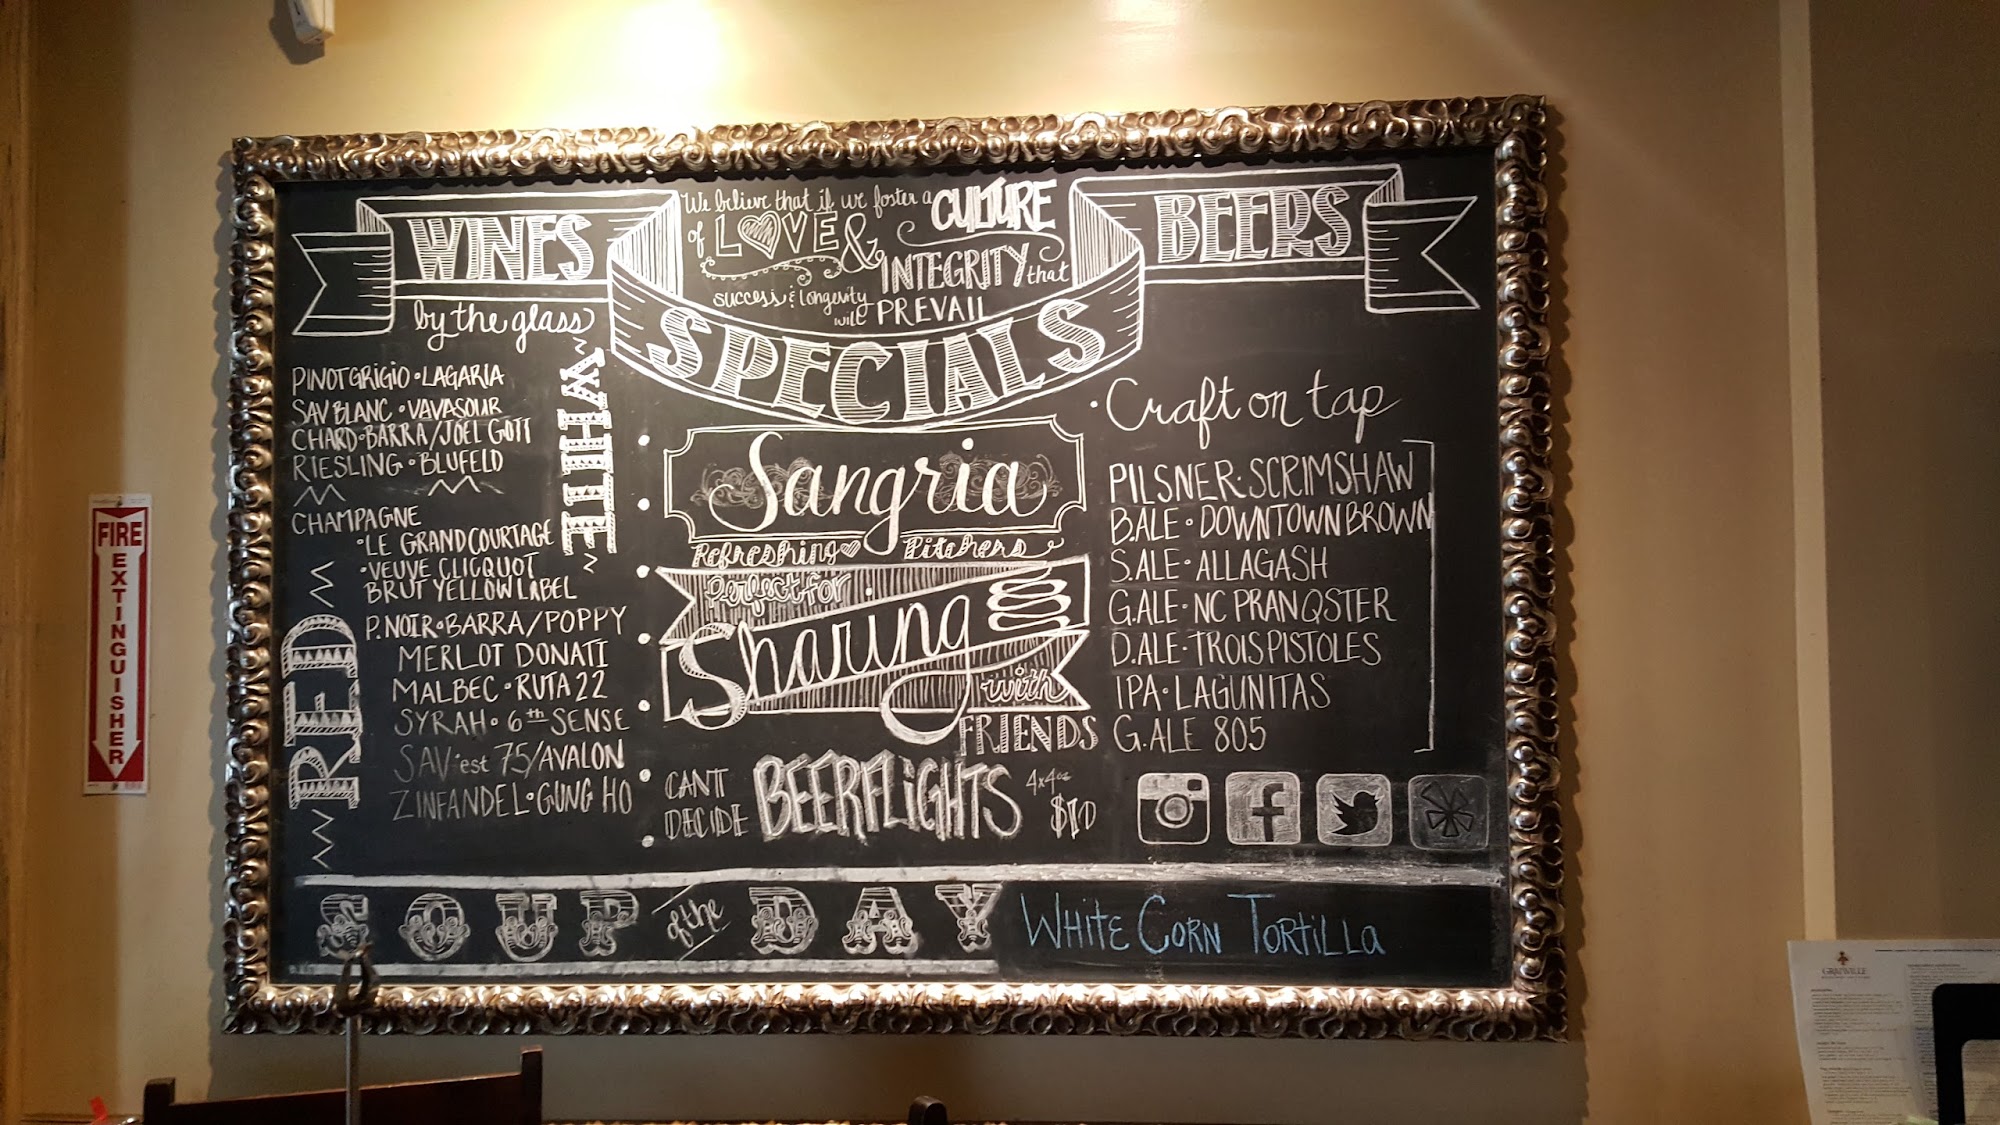 FIRE
EXTINGUISHER
WINES
by the glass
WHITE
PINOT GRIGIO • LAGARIA
SAV BLANC • VAVASOUR
CHARD • BARRA/JOEL GOTT
RIESLING • BLUFELD
CHAMPAGNE
• LE GRAND COURTAGE
• VEUVE CLICQUOT
BRUT YELLOW LABEL
RED
P. NOIR • BARRA/POPPY
MERLOT DONATI
MALBEC • RUTA 22
SYRAH • 6th SENSE
SAV • est 75/AVALON
ZINFANDEL • GUNG HO
We believe that if we foster a CULTURE
of LOVE & INTEGRITY that
success & longevity will PREVAIL
SPECIALS
Sangria
Refreshing Pitchers
Perfect for
Sharing
with
FRIENDS
CANT DECIDE BEERFLIGHTS 4x4oz $10
BEERS
• Craft on tap
PILSNER • SCRIMSHAW
B.ALE • DOWNTOWN BROWN
S.ALE • ALLAGASH
G.ALE • NC PRANQSTER
D.ALE • TROIS PISTOLES
IPA • LAGUNITAS
G.ALE 805
SOUP of the DAY WHITE CORN TORTILLA
GRANVILLE